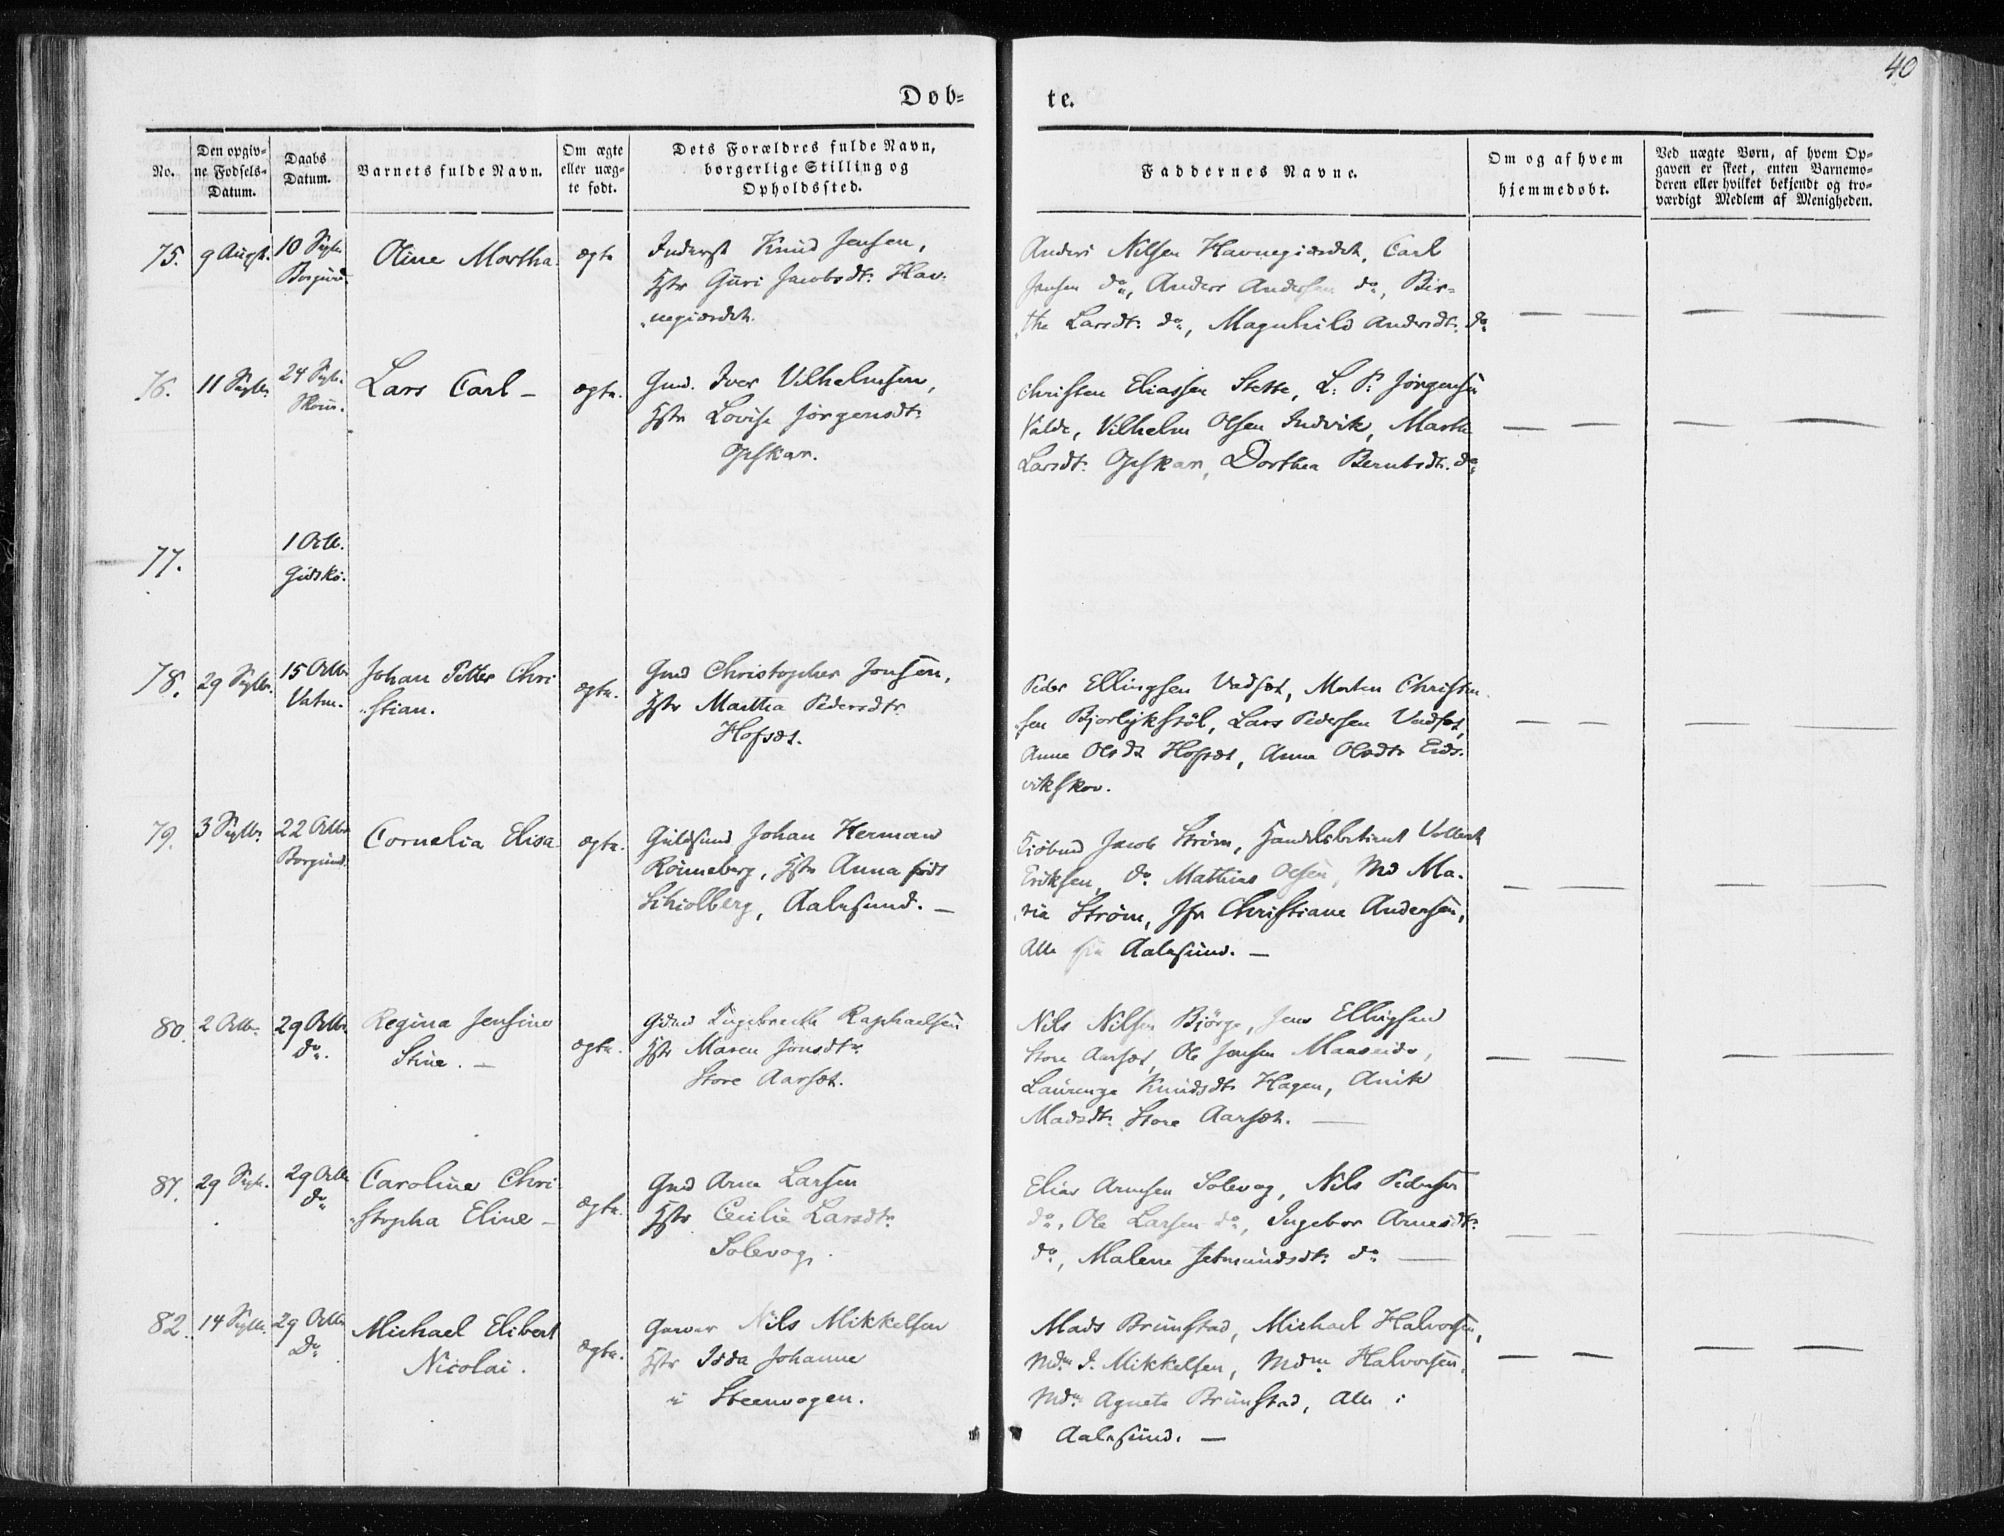 40
Døb-
te.
No.
Den opgiv-
ne Fødsels-
Datum.
Daabs
Datum.
Barnets fulde Navn.
Om ægte
eller uæg-
te født.
Dets Forældres fulde Navn,
borgerlige Stilling og
Opholdssted.
Faddernes Navne.
Om og af hvem
hjemmedøbt.
Ved uægte Børn, af hvem Op-
gaven er skeet, enten Barnemo-
deren eller hvilket bekjendt og tro-
værdigt Medlem af Menigheden.
75.
9 August.
10 Septbr.
Borgund.
Oline Martha
ægte
Inderst Knud Jensen,
Hstr Guri Jacobsdtr. Hav-
negiærdet.
Anders Nilsen Havnegiærdet, Carl
Jensen do., Anders Andersen do., Bir-
the Larsdtr. do., Magnhild Andersdtr. do.
76.
11 Septbr
24 Septbr.
Lars Carl –
ægte.
Gmd. Iver Vilhelmsen,
Hstr Lovise Jørgensdtr.
Opskar.
Christen Eliassen Stette, L. P. Jørgensen
Valde, Vilhelm Olsen Indvik, Marthe
Larsdtr. Opskar, Dorthea Berntsdtr. do.
77.
1 Octbr.
Gidskø.
78.
29 Septbr.
15 Octbr
Vatne.
Johan Petter Chri
stian.
ægte.
Gmd Christopher Jonsen,
Hstr Martha Pedersdtr.
Hofsæt.
Peder Ellingsen Vadset, Morten Christen
sen Bjorlykstøl, Lars Pedersen Vadset,
Anne Olsdtr Hofsæt, Anne Olsdtr Eids-
vikskov.
79.
3 Septbr
22 Octbr
Borgund.
Cornelia Elisa
ægte.
Guldsmd Johan Herman
Rønneberg, Hstr Anna født
Schiolberg, Aalesund. –
Kiøbmd Jacob Strøm, Handelsbetient Vollert
Eriksen, do. Mathias Olsen, Md Ma-
ria Strøm, Jfr Christiane Andersen,
Alle fra Aalesund. –
80.
2 Octbr.
29 Octbr.
do.
Regina Jensine
Stine. –
ægte.
Gdmd Ingebrecth Raphaelsen
Hstr Maren Jonsdtr.
Store Aarsæt.
Nils Nilsen Bjørge, Jens Ellingsen
Store Aarsæt, Ole Jensen Maaseide,
Laurenze Knudsdtr Hagen, Anike
Madsdtr. Store Aarsæt. –
81.
29 Septbr.
29 Octbr
do
Caroline Chri
stopha Eline –
ægte.
Gmd Arne Larsen
Hstr Cecilie Larsdtr.
Solevog.
Elias Arnesen Solevog, Nils Pedersen
do., Ole Larsen do., Ingebor Arnesdtr.
do., Malene Jetmundsdtr. do. –
82.
14 Septbr.
29 Octbr
Do
Michael Elibert
Nicolai.
ægte.
Garver Nils Mikkelsen
Hstr Idda Johanne
i Steenvogen.
Mads Brunstad, Michael Halvorsen,
Mdm I. Mikkelsen, Mdm Halvorsen,
Mdm Agnete Brunstad, Alle i
Aalesund. –